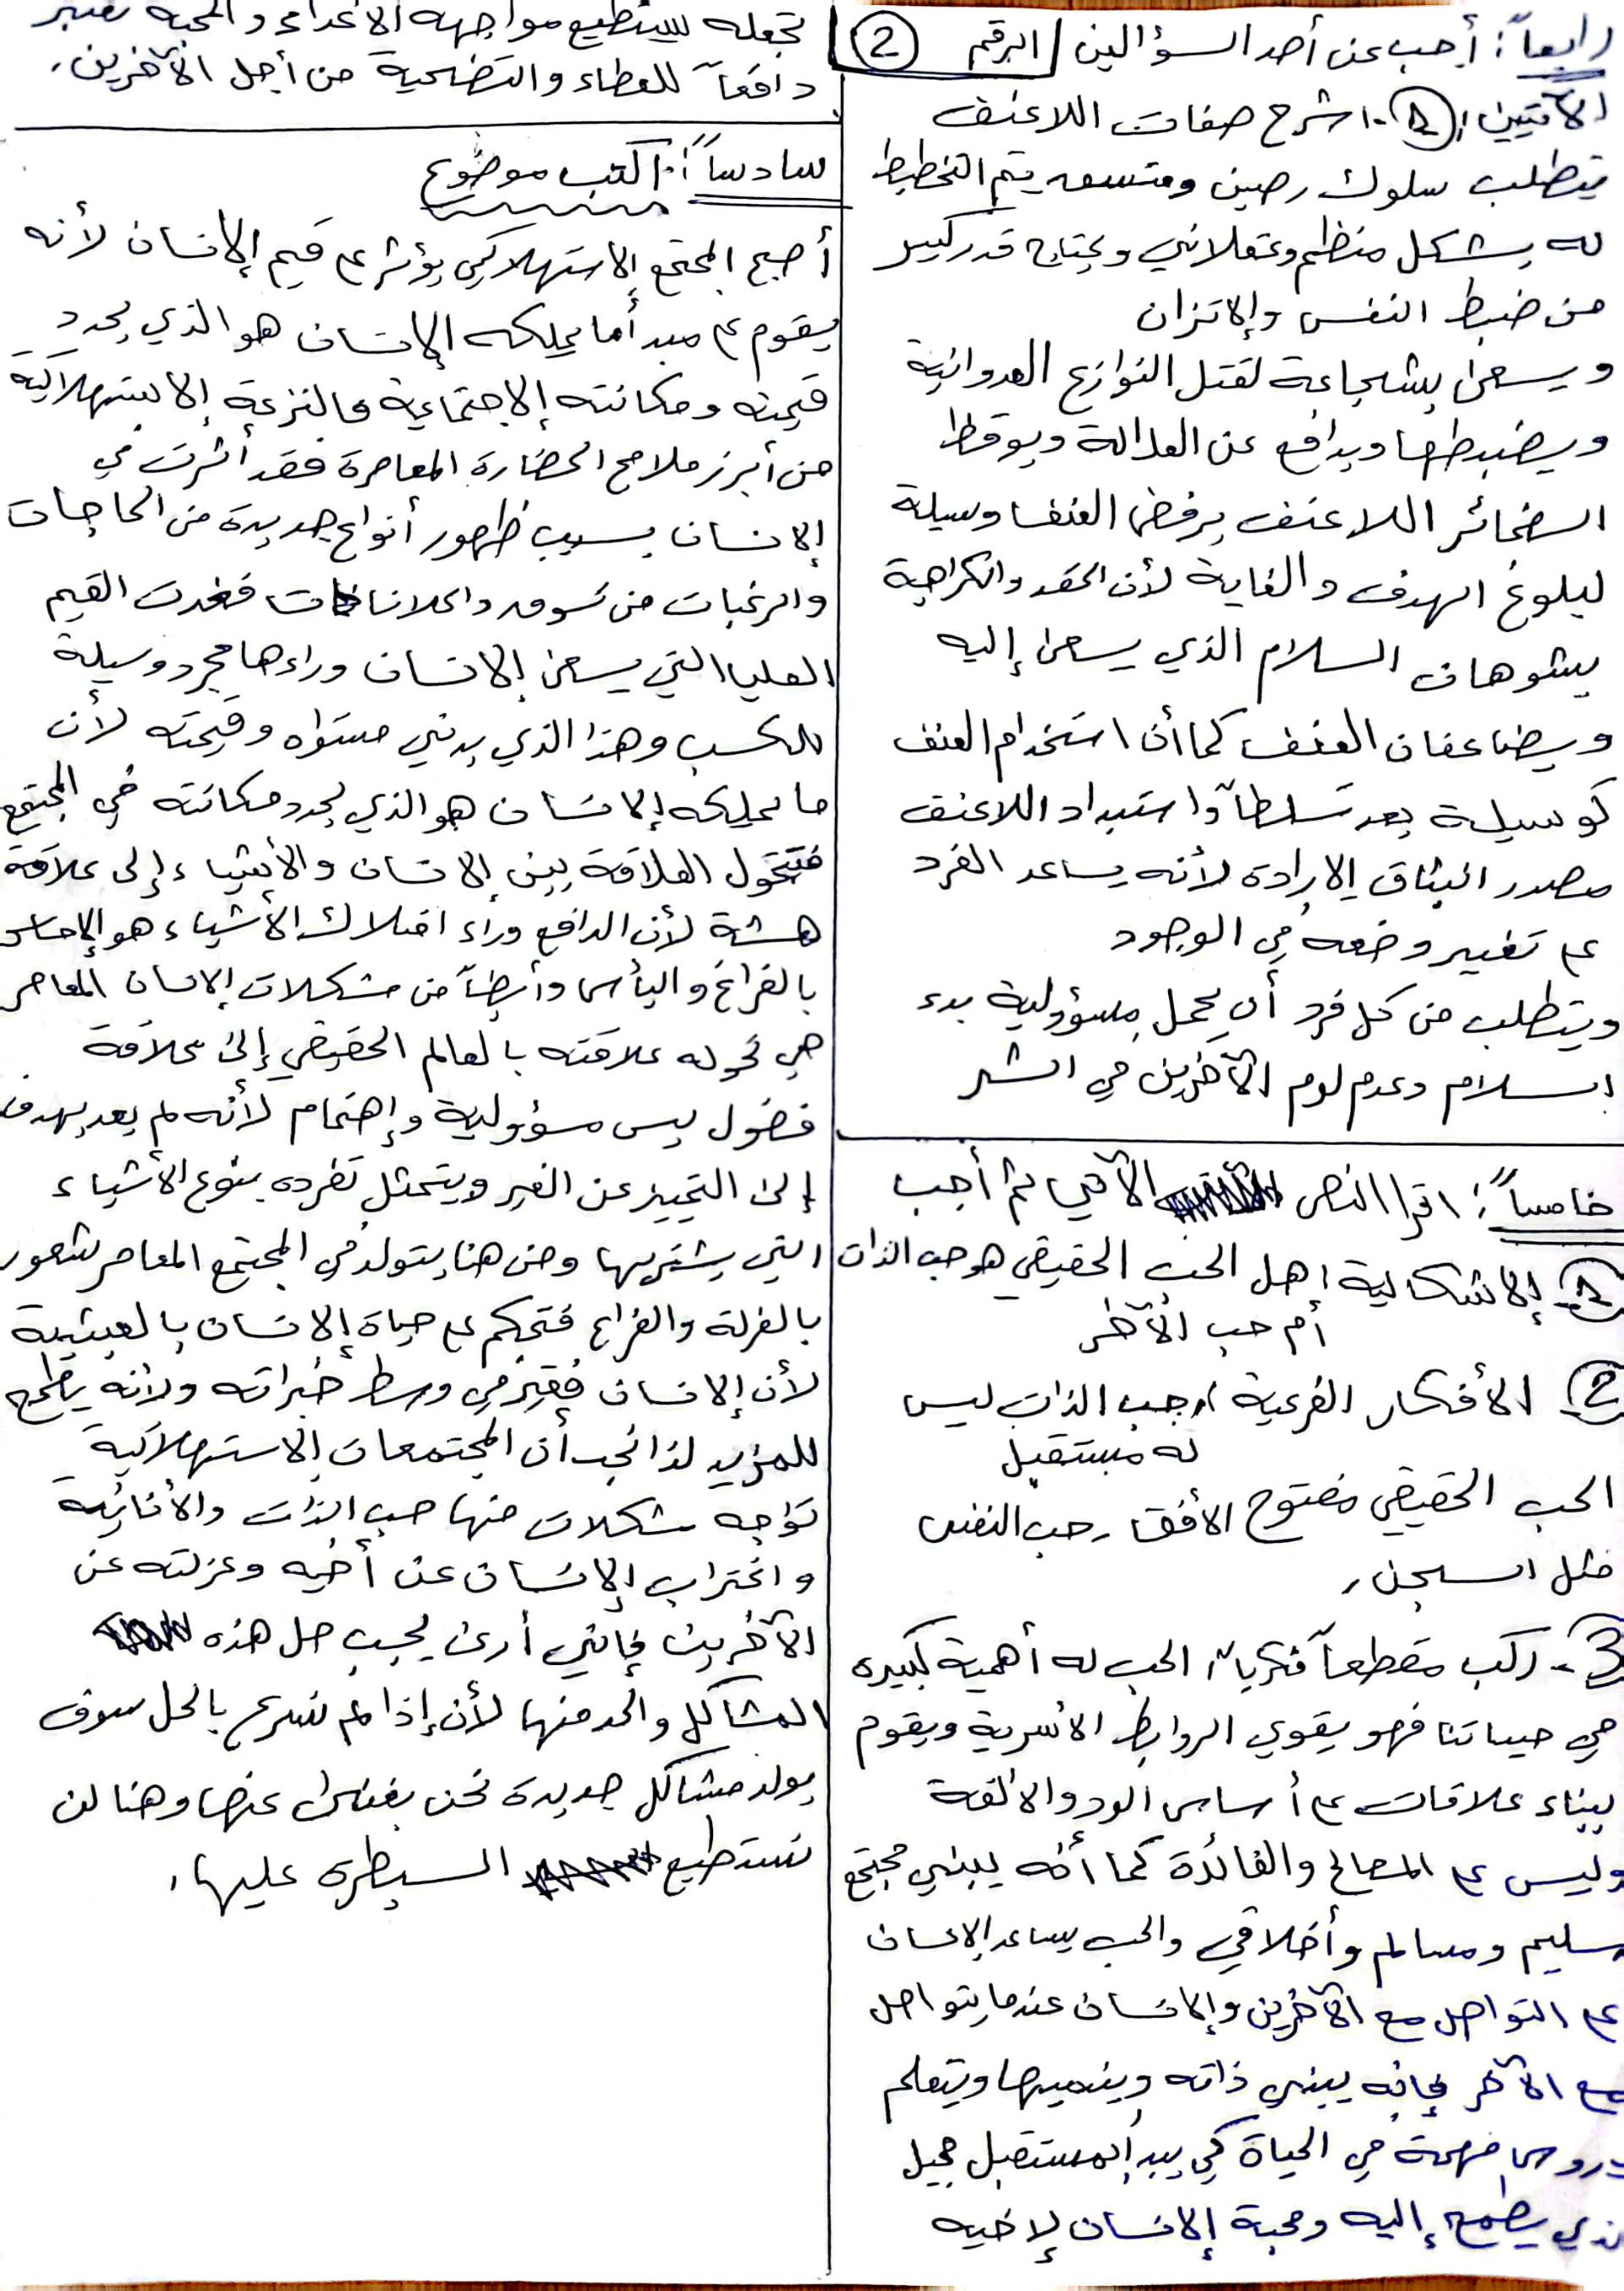 رابعاً: أجب عن أحد السؤالين الرقم 2
الآتيين: 1- اشرح صفات اللاعنف
يتطلب سلوك رصين ومتسق يتم التخطيط
له بشكل منظم وعقلاني ويحتاج قدر كبير
من ضبط النفس وإلاتزان
ويسعى بشجاعة لقتل النوازع العدوانية
ويضبطها ويدافع عن العدالة ويوقظ
الضمائر اللاعنف يرفض العنف وسيلة
لبلوغ الهدف والغاية لأن الحقد والكراهية
يشوهان السلام الذي يسعى إليه
ويضاعفان العنف كما أن استخدام العنف
كوسيلة يعد تسلطاً واستبداد اللاعنف
مصدر انبثاق الإرادة لأنه يساعد الفرد
على تغيير وضعه في الوجود
ويتطلب من كل فرد أن يحمل مسؤولية بدء
السلام وعدم لوم الآخرين في الشر
خامساً: اقرأ النص الآتي ثم أجب
1- إلاشكالية: هل الحب الحقيقي هو حب الذات
أم حب الآخر
2- الأفكار الفرعية: حب الذات ليس
له مستقبل
الحب الحقيقي مفتوح الأفق، حب النفس
مثل السجن.
3- ركب مقطعاً فكرياً: الحب له أهمية كبيره
في حياتنا فهو يقوي الروابط الأسرية ويقوم
ببناء علاقات على أساس الود والألفة
وليس على المصالح والفائدة كما أنه يبني مجتمع
سليم ومسالم وأخلاقي والحب يساعد الإنسان
على التواصل مع الآخرين وإلانسان عندما يتواصل
مع الآخر فإنه يبني ذاته وينميها ويتعلم
دروس مهمة في الحياة كي يبدأ لمستقبل جميل
الذي يطمح إليه ومحبة إلانسان لاخيه
تجعله يستطيع مواجهه الأعداء والمحبه تعتبر
دافعاً للعطاء والتضحية من أجل الآخرين.
سادساً: اكتب موضوع
أصبح المجتمع الاستهلاكي يؤثر على قيم إلانسان لأنه
يقوم على مبدأ ما يملكه إلانسان هو الذي يحدد
قيمته ومكانته إلاجتماعية فالنزعة إلاستهلاكية
من أبرز ملامح الحضارة المعاصرة فقد أثرت في
إلانسان بسبب ظهور أنواع جديدة من الحاجات
والرغبات من تسوق واعلانات فغدت القيم
العليا التي يسعى إلانسان وراءها مجرد وسيلة
للكسب وهذا الذي يدني مستواه وقيمته لأن
ما يملكه إلانسان هو الذي يحدد مكانته في المجتمع
فتتحول العلاقة بين إلانسان والأشياء إلى علاقة
هشة لأن الدافع وراء امتلاك الأشياء هو إلاحساس
بالفراغ واليأس وأيضاً من مشكلات إلانسان المعاصر
هي تحوله علاقته بالعالم الحقيقي إلى علاقة
فضول ليس مسؤولية وإهتمام لأنه لم يعد يهدف
إلى التمييز عن الغير ويتمثل تفرده بنوع الأشياء
التي يشتريها ومن هنا يتولد في المجتمع المعاصر شعور
بالعزلة والفراغ فتحكم على حياة إلانسان بالعبثية
لأن إلانسان فقير في وسط خيراته ولأنه يطمح
للمزيد لذا نجد أن المجتمعات الاستهلاكية
تواجه مشكلات منها حب الذات والأنانية
واغتراب إلانسان عن أخيه وعزلته عن
الآخرين فإنني أرى يجب حل هذه
المشاكل والحد منها لأن إذا لم نسرع بالحل سوف
يولد مشاكل جديدة نحن بغنى عنها وهنا لن
نستطيع السيطرة عليها.